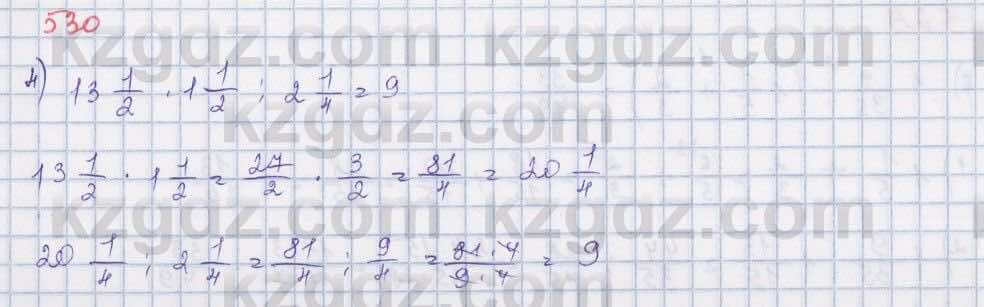 530
kzgdz.com kzgdz.com
4) 13 1/2 · 1 1/2 : 2 1/4 = 9
kzgdz.com
13 1/2 · 1 1/2 = 27/2 · 3/2 = 81/4 = 20 1/4
kzgdz.com kzgdz.com
20 1/4 : 2 1/4 = 81/4 : 9/4 = 81·4/9·4 = 9
kzgdz.com